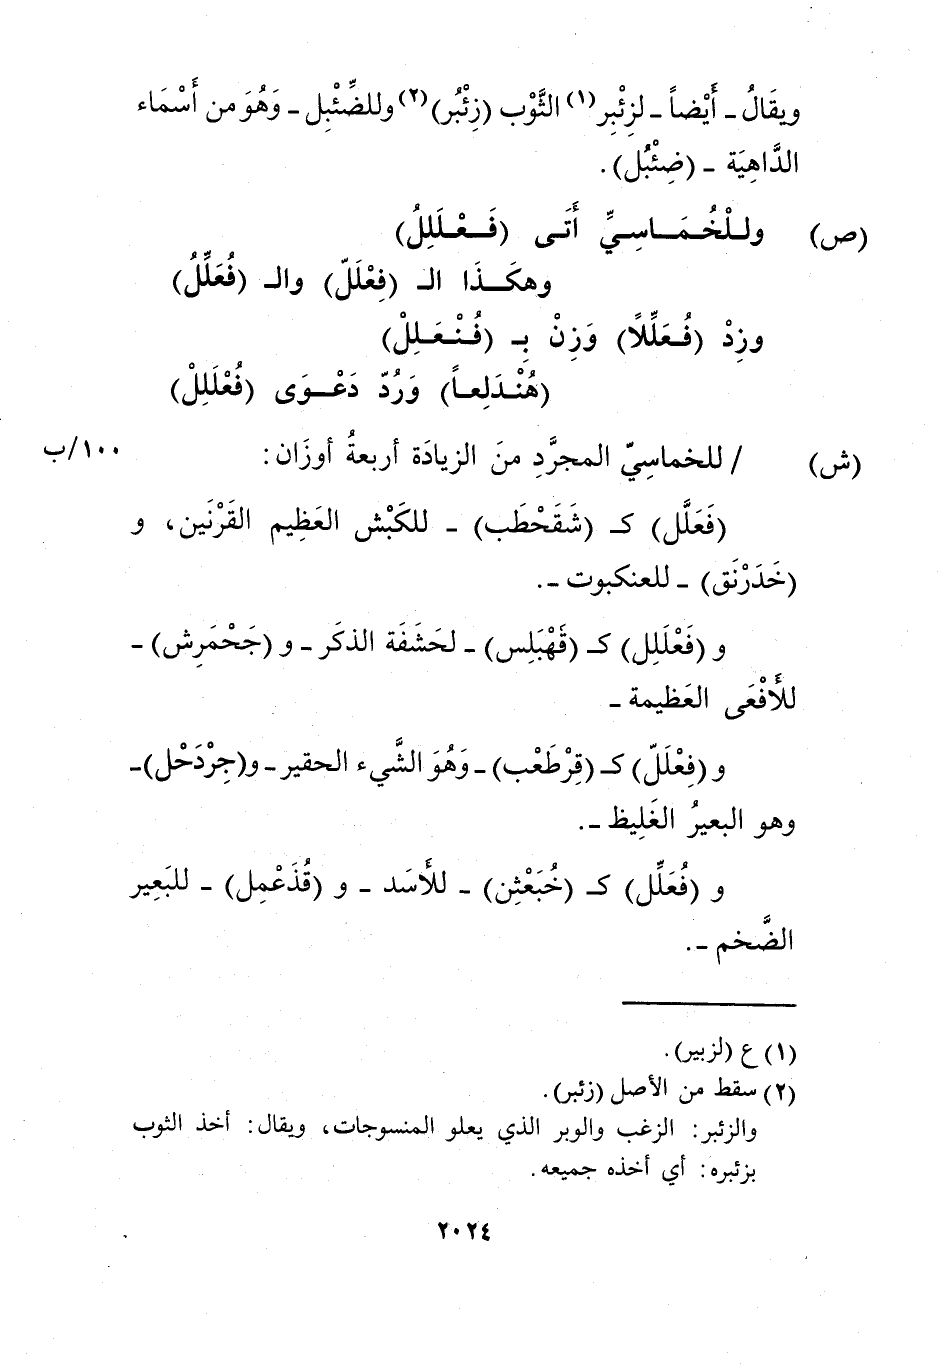 ويقَالُ ـ أَيْضاً ـ لزِئْبِرِ (١) الثَّوْب (زِئْبُر) (٢) وللضِّئْبِل ـ وَهُوَ من أَسْمَاء
الدَّاهِيَة ـ (ضِئْبُل).
(ص) وللْخُمَاسِيِّ أَتَى (فَعْلَلِلُ)
وهكَذَا الـ (فِعْلَلّ) والـ (فُعَلِّلُ)
وزِدْ (فُعَلِّلًا) وَزِنْ بِـ (فُنْعَلِلْ)
(هُنْدَلِعاً) وَرُدّ دَعْوَى (فُعْلَلِلْ)
(ش) / للخماسِيّ المجرَّدِ منَ الزيادَة أربعةُ أوزَان: ١٠٠/ب
(فَعَلَّل) كـ (شَقَحْطَب) ـ للكَبْش العَظِيم القَرْنَين، و
(خَدَرْنَق) ـ للعنكبوت ـ.
و (فَعْلَلِل) كـ (قَهْبَلِس) ـ لحَشَفَة الذكَر ـ و (جَحْمَرِش) ـ
للأَفْعَى العَظيمة ـ
و (فِعْلَلّ) كـ (قِرْطَعْب) ـ وَهُوَ الشَّيء الحقير ـ و(جِرْدَحْل)ـ
وهو البعيرُ الغَلِيظ ـ.
و (فُعَلِّل) كـ (خُبَعْثِن) ـ للأَسَد ـ و (قُذَعْمِل) ـ للبَعِير
الضَّخم ـ.
(١) ع (لزبير).
(٢) سقط من الأصل (زئبر).
والزئبر: الزغب والوبر الذي يعلو المنسوجات، ويقال: أخذ الثوب
بزئبره: أي أخذه جميعه.
٢٠٢٤